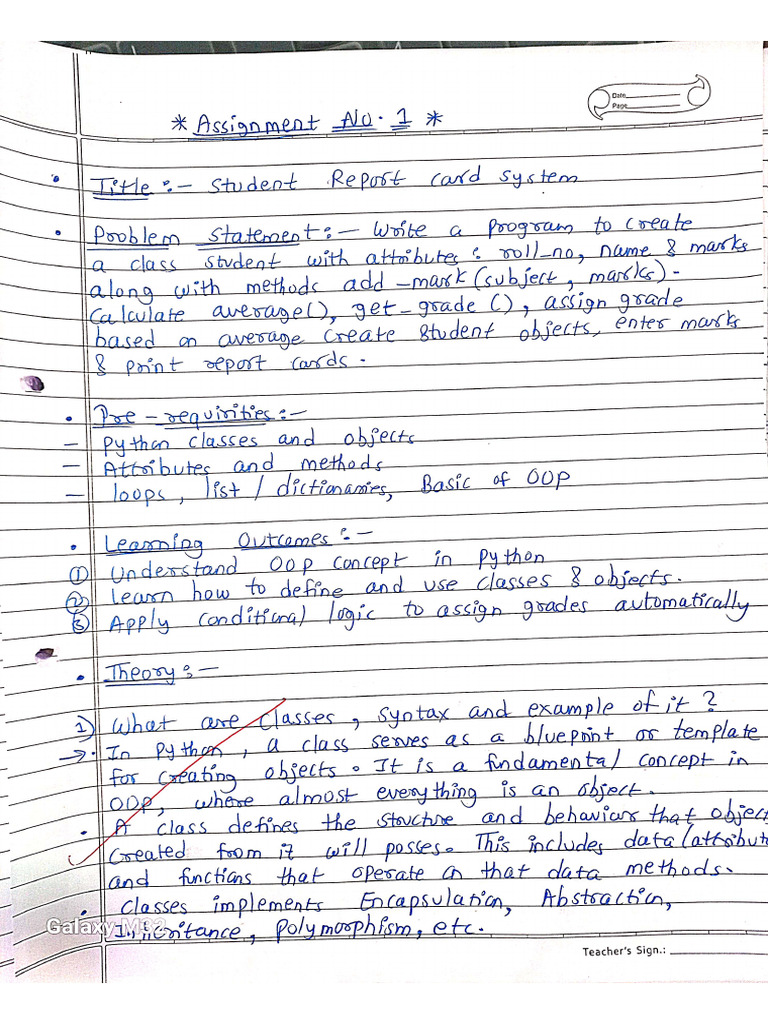 Date
Page
* Assignment No. 1 *
• Title :- Student Report card system
• Problem Statement :- Write a program to create
a class student with attributes : roll_no, name & marks
along with methods add-mark (subject, marks).
Calculate average(), get-grade (), assign grade
based on average create student objects, enter marks
& print report cards.
• Pre-requirities :-
- Python classes and objects
- Attributes and methods
- loops, list / dictionaries, Basic of OOP
• Learning Outcomes :-
① Understand OOP concept in python
② Learn how to define and use classes & objects.
③ Apply conditional logic to assign grades automatically
• Theory :-
1) What are Classes, syntax and example of it ?
→ • In python, a class serves as a blueprint or template
for creating objects. It is a fundamental concept in
OOP, where almost everything is an object.
• A class defines the structure and behaviour that objec
created from it will posses. This includes data (attribut
and functions that operate on that data methods.
• Classes implements Encapsulation, Abstraction,
Inheritance, Polymorphism, etc.
Galaxy M32
Teacher's Sign.: